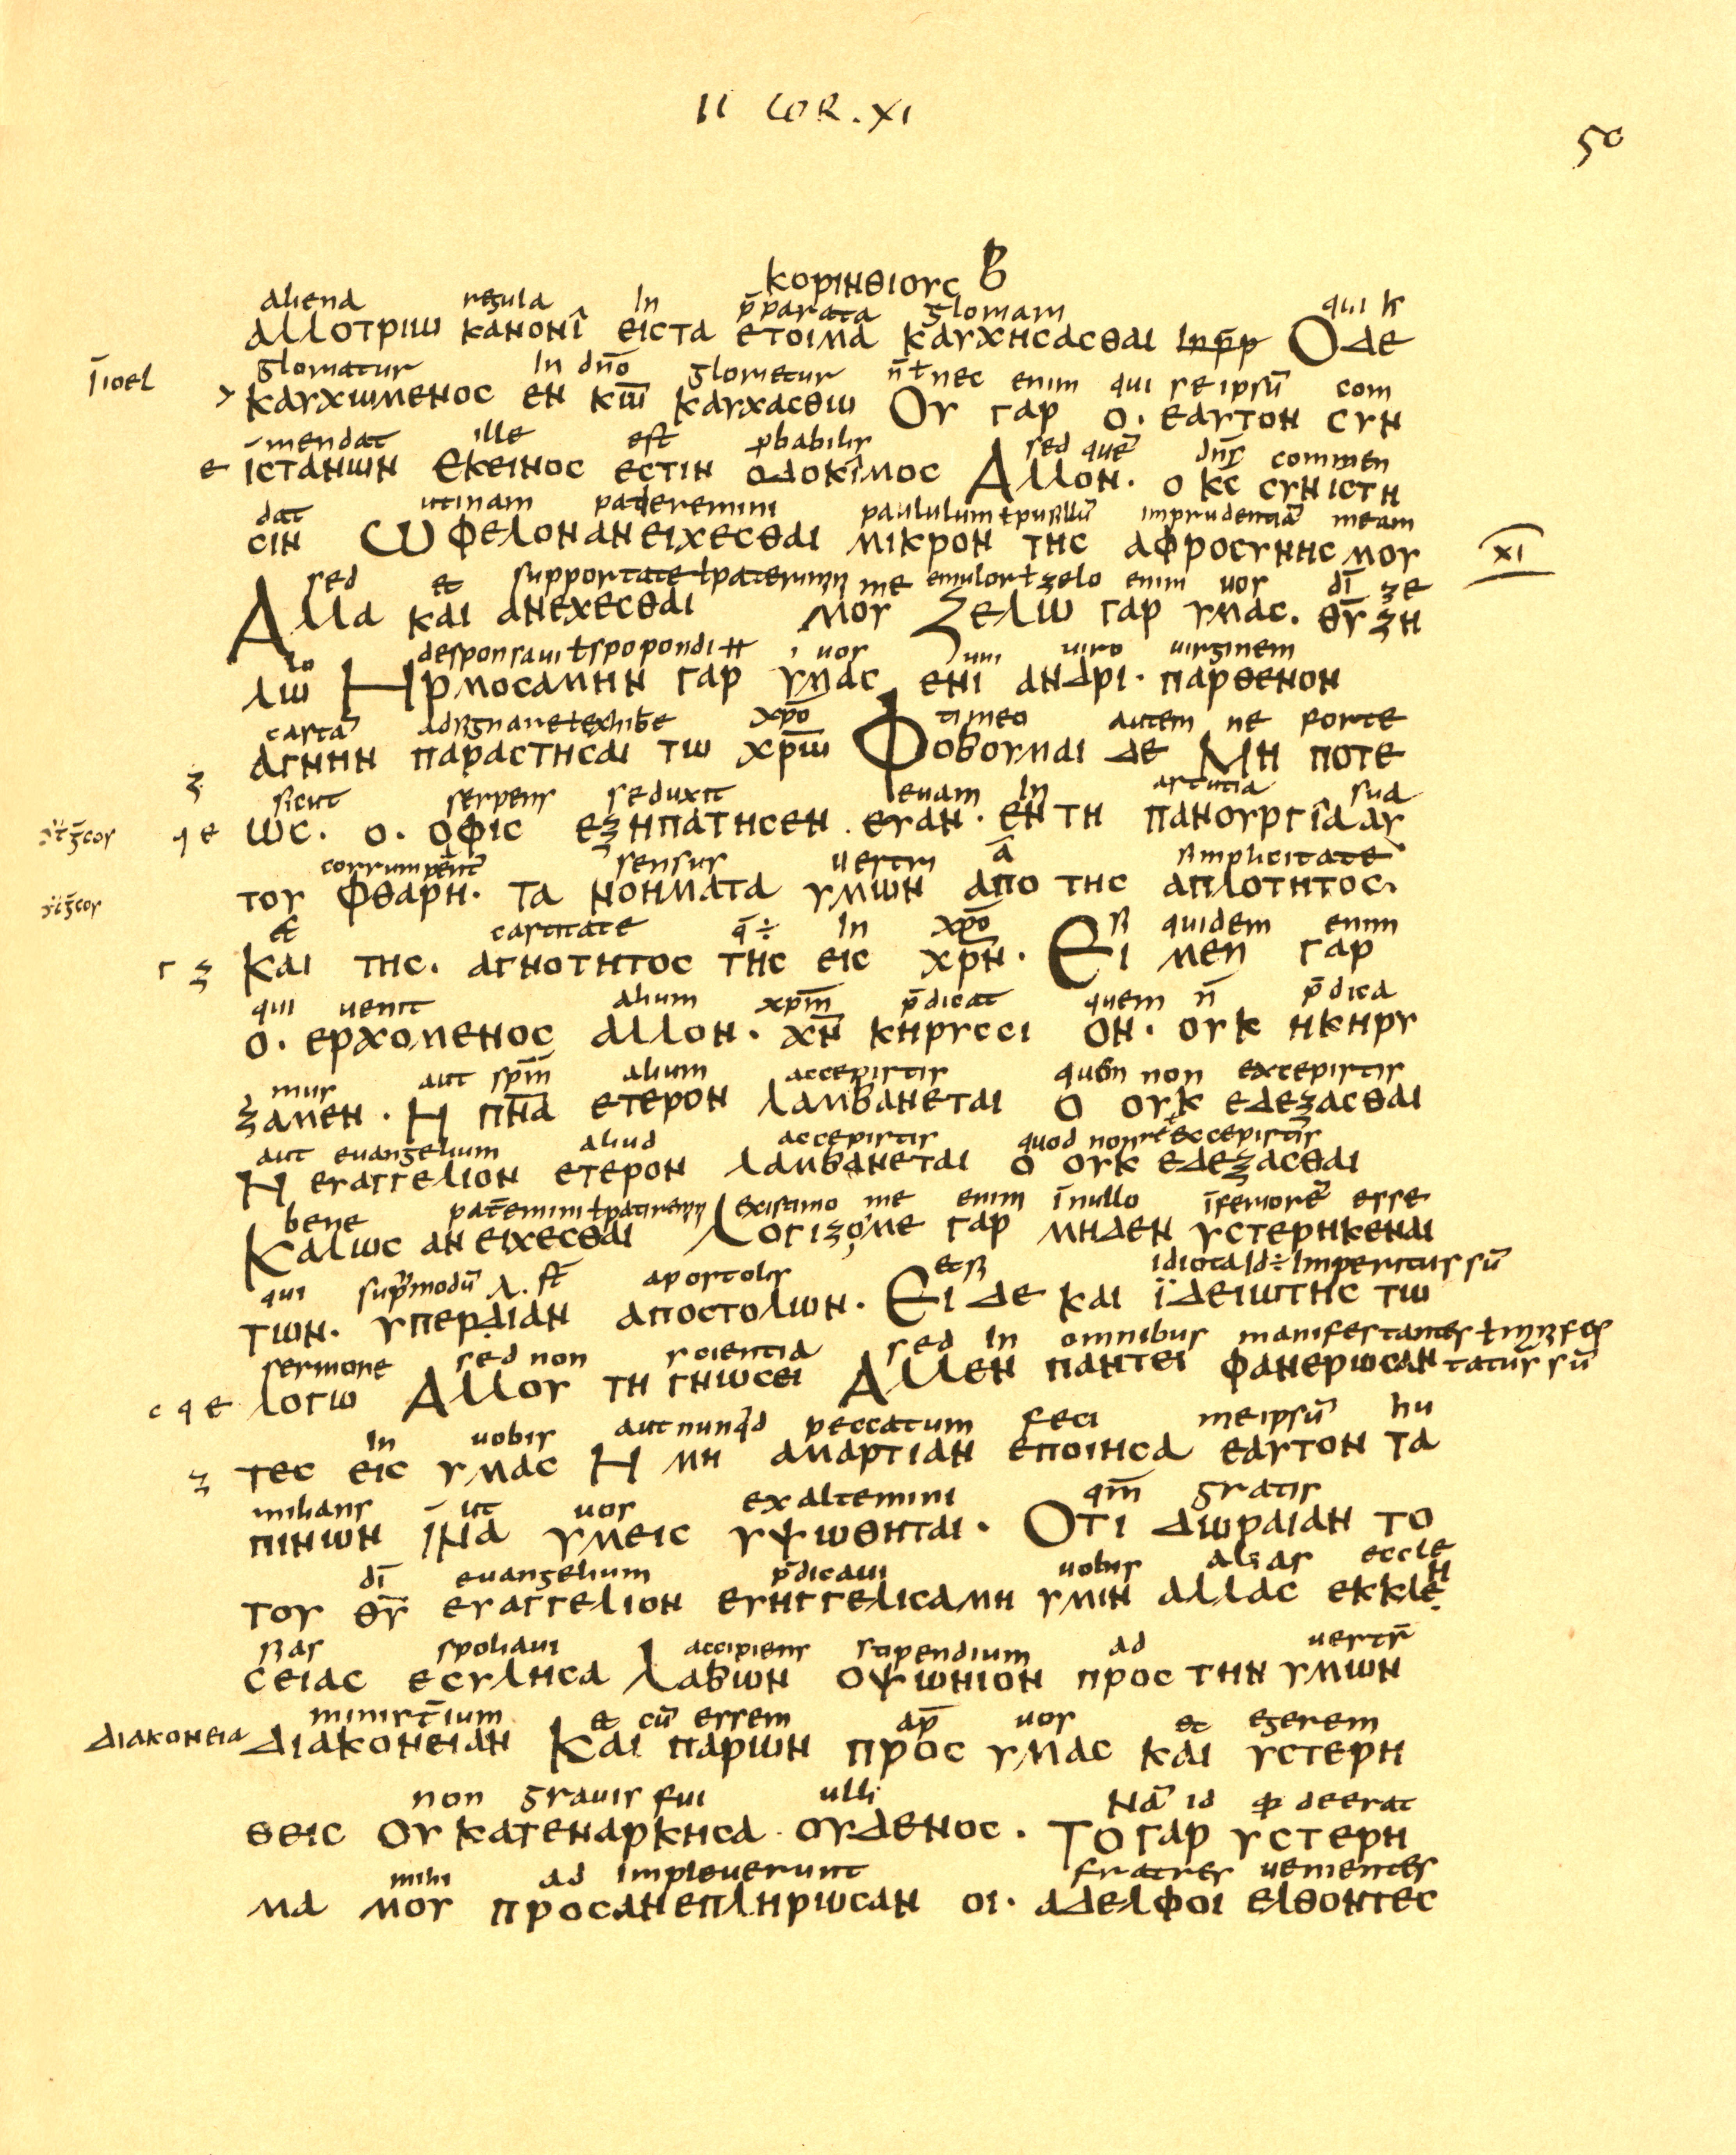 II COR. XI
50
κορινθιογc β
aliena regula In p̄parata gloriam qui h
αλλοτριω κανονι εις τα ετοιμα καγχηςαςθαι Ο δε
Iioel
gloriatur In dn̄o glorietur n̄ ł nec enim qui se ipsū com
καγχωμενος εν κω̄ καγχαςθω Ογ γαρ ο· εαγτον ςγν
mendat ille est ꝓbabilis sed quē dn̄s commen
ε ιςτανων Εκεινος εςτιν οδοκιμος Αλλον· ο κ̄ς ςγνιςτη
dat utinam pateremini paululum ł pusillū imprudentiā meam
ςιν Ω φελον ανειχεςθαι μικρον της αφροςγνης μογ
XI
sed et supportate ł patemini me emulor ł zelo enim uos dī ze
Αλλα και ανεχεςθαι μογ Ζελω γαρ γμας· θ̄γ ζη
lo desponsaui ł spopondi uos uni uiro uirginem
λω Ηρμοςαμην γαρ γμας ενι ανδρι· παρθενον
castā adsignare ł exhibe xp̄o timeo autem ne forte
αγνην παραςτηςαι τω χρ̄ω Φοβογμαι δε Μη ποτε
ζ
sicut serpens seduxit euam In astutia sua
q ε ως· ο· οφις εξηπατηςεν· εγαν· εν τη πανογργια αγ
corrumpent sensus uestri ā simplicitate
τογ φθαρη· τα νοηματα γμων απο της απλοτητος·
et castitate q̄ ÷ In xp̄o Si quidem enim
Γ ζ και της· αγνοτητος της εις χρ̄ν· Ει μεν γαρ
qui uenit alium xp̄m p̄dicat quem n̄ p̄dica
ο· ερχομενος αλλον· χ̄ν κηργςςι ον· ογκ ηκηργ
mus aut sp̄m alium accepistis quem non excepistis
ξαμεν· Η πν̄α ετερον λαμβανεται ο ογκ εδεξαςθαι
aut euangelium aliud accepistis quod non reccepistis
Η εγαγγελιον ετερον λαμβανεται ο ογκ εδεξαςθαι
bene existimo me enim īnullo īferiorē esse
Καλως ανειχεςθαι Λογιζομε γαρ μηδεν γςτερηκεναι
qui sup̄modū λ. st̄ apostolis etsi idiota Id ÷ Imperitus sū
των· γπερδιαν αποςτολων· Ει δε και ϊδειωτης τω
sermone sed non scientia sed In omnibus manifestantes
ς q ε λογω Αλλογ τη γνωςει Αλλεν παντει φανερωςαν tatus sū
In uobis aut nunqd peccatum feci meipsū hu
ζ τες εις γμας Η μη αμαρτιαν εποιηςα εαγτον τα
milians ut uos exaltemini qm̄ gratis
πινων ινα γμεις γψωθηται· Οτι δωραιαν το
dī euangelium p̄dicaui uobis alias eccle
τογ θ̄γ εγαγγελιον εγηγγελιςαμη γμιν αλλας εκκλε
η
sias spoliaui accipiens stipendium ad uestr̄
ςειας εςγληςα Λαβων οψωνιον προς την γμων
minist̄ium et cū essem ap̄ uos et egerem
διακονεια διακονειαν Και παρων προς γμας και γςτερη
non grauis fui ulli Nā id deerat
θεις Ογ κατεναρκηςα ογδενος· Το γαρ γςτερη
mihi ad impleuerunt fratres uenientes
μα μογ προςανεπληρωςαν οι· αδελφοι ελθοντες